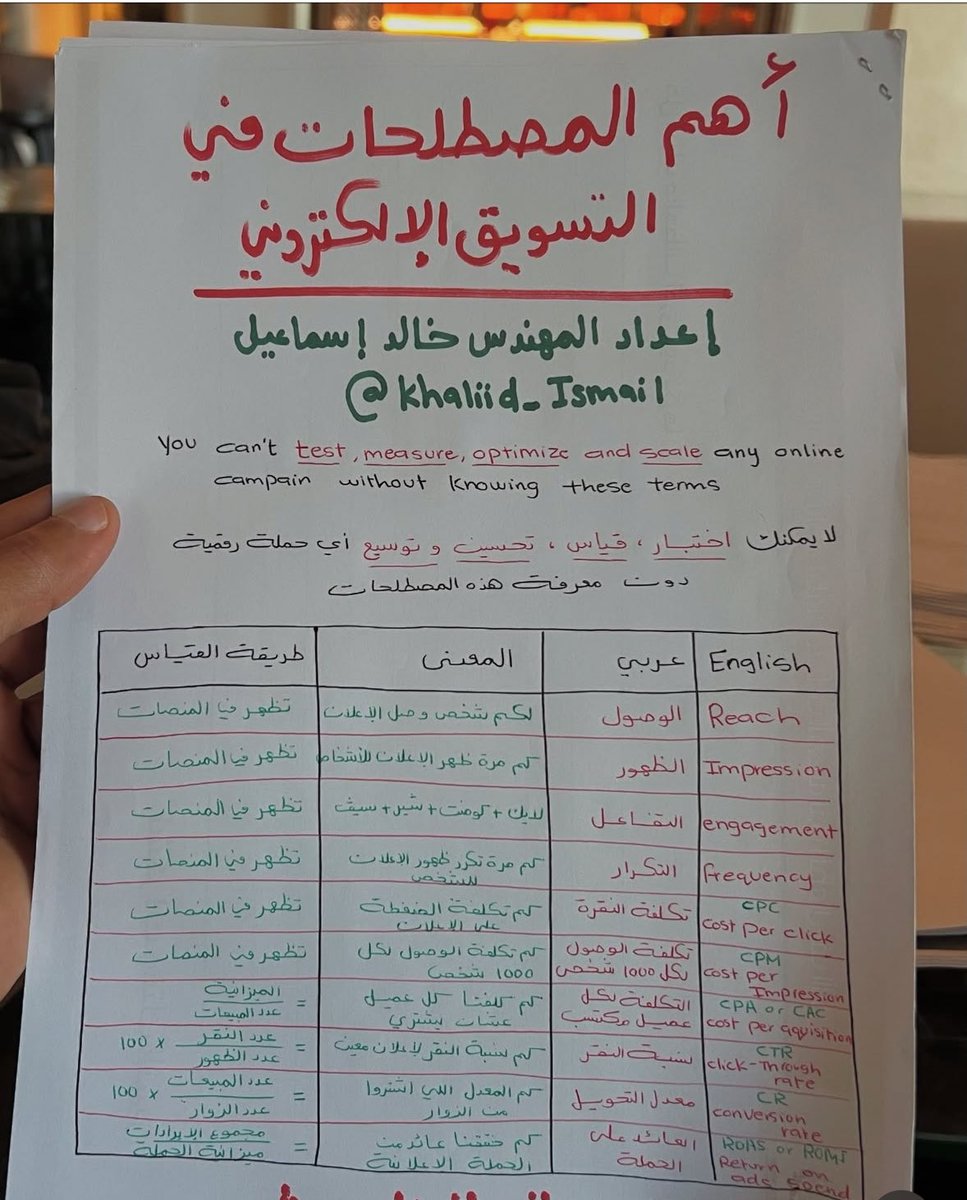 أهم المصطلحات في
التسويق الإلكتروني
إعداد المهندس خالد إسماعيل
@Khaliid_Ismail
You can't test, measure, optimize and scale any online
campain without knowing these terms
لا يمكنك اختبار، قياس، تحسين و توسيع أي حملة رقمية
دون معرفة هذه المصطلحات
English عربي المعنى طريقة القياس
Reach الوصول لكم شخص وصل الإعلان تظهر في المنصات
Impression الظهور كم مرة ظهر الإعلان للأشخاص تظهر في المنصات
engagement التفاعل لايك + كومنت + شير + سيف تظهر في المنصات
frequency التكرار كم مرة تكرر ظهور الإعلان للشخص تظهر في المنصات
CPC cost per click تكلفة النقرة كم تكلفة الضغطة على الإعلان تظهر في المنصات
CPM cost per Impression تكلفة الوصول لكل 1000 شخص كم تكلفة الوصول لكل 1000 شخص تظهر في المنصات
CPA or CAC cost per aquisition التكلفة لكل عميل مكتسب كم كلفنا كل عميل عشان يشتري = الميزانية / عدد المبيعات
CTR click-through rate نسبة النقر كم نسبة النقر لإعلان معين = عدد النقر / عدد الظهور × 100
CR conversion rate معدل التحويل كم المعدل اللي اشتروا من الزوار = عدد المبيعات / عدد الزوار × 100
ROAS or ROMI Return on ads spend العائد على الحملة كم حققنا عائد من الحملة الاعلانية = مجموع الايرادات / ميزانة الحملة